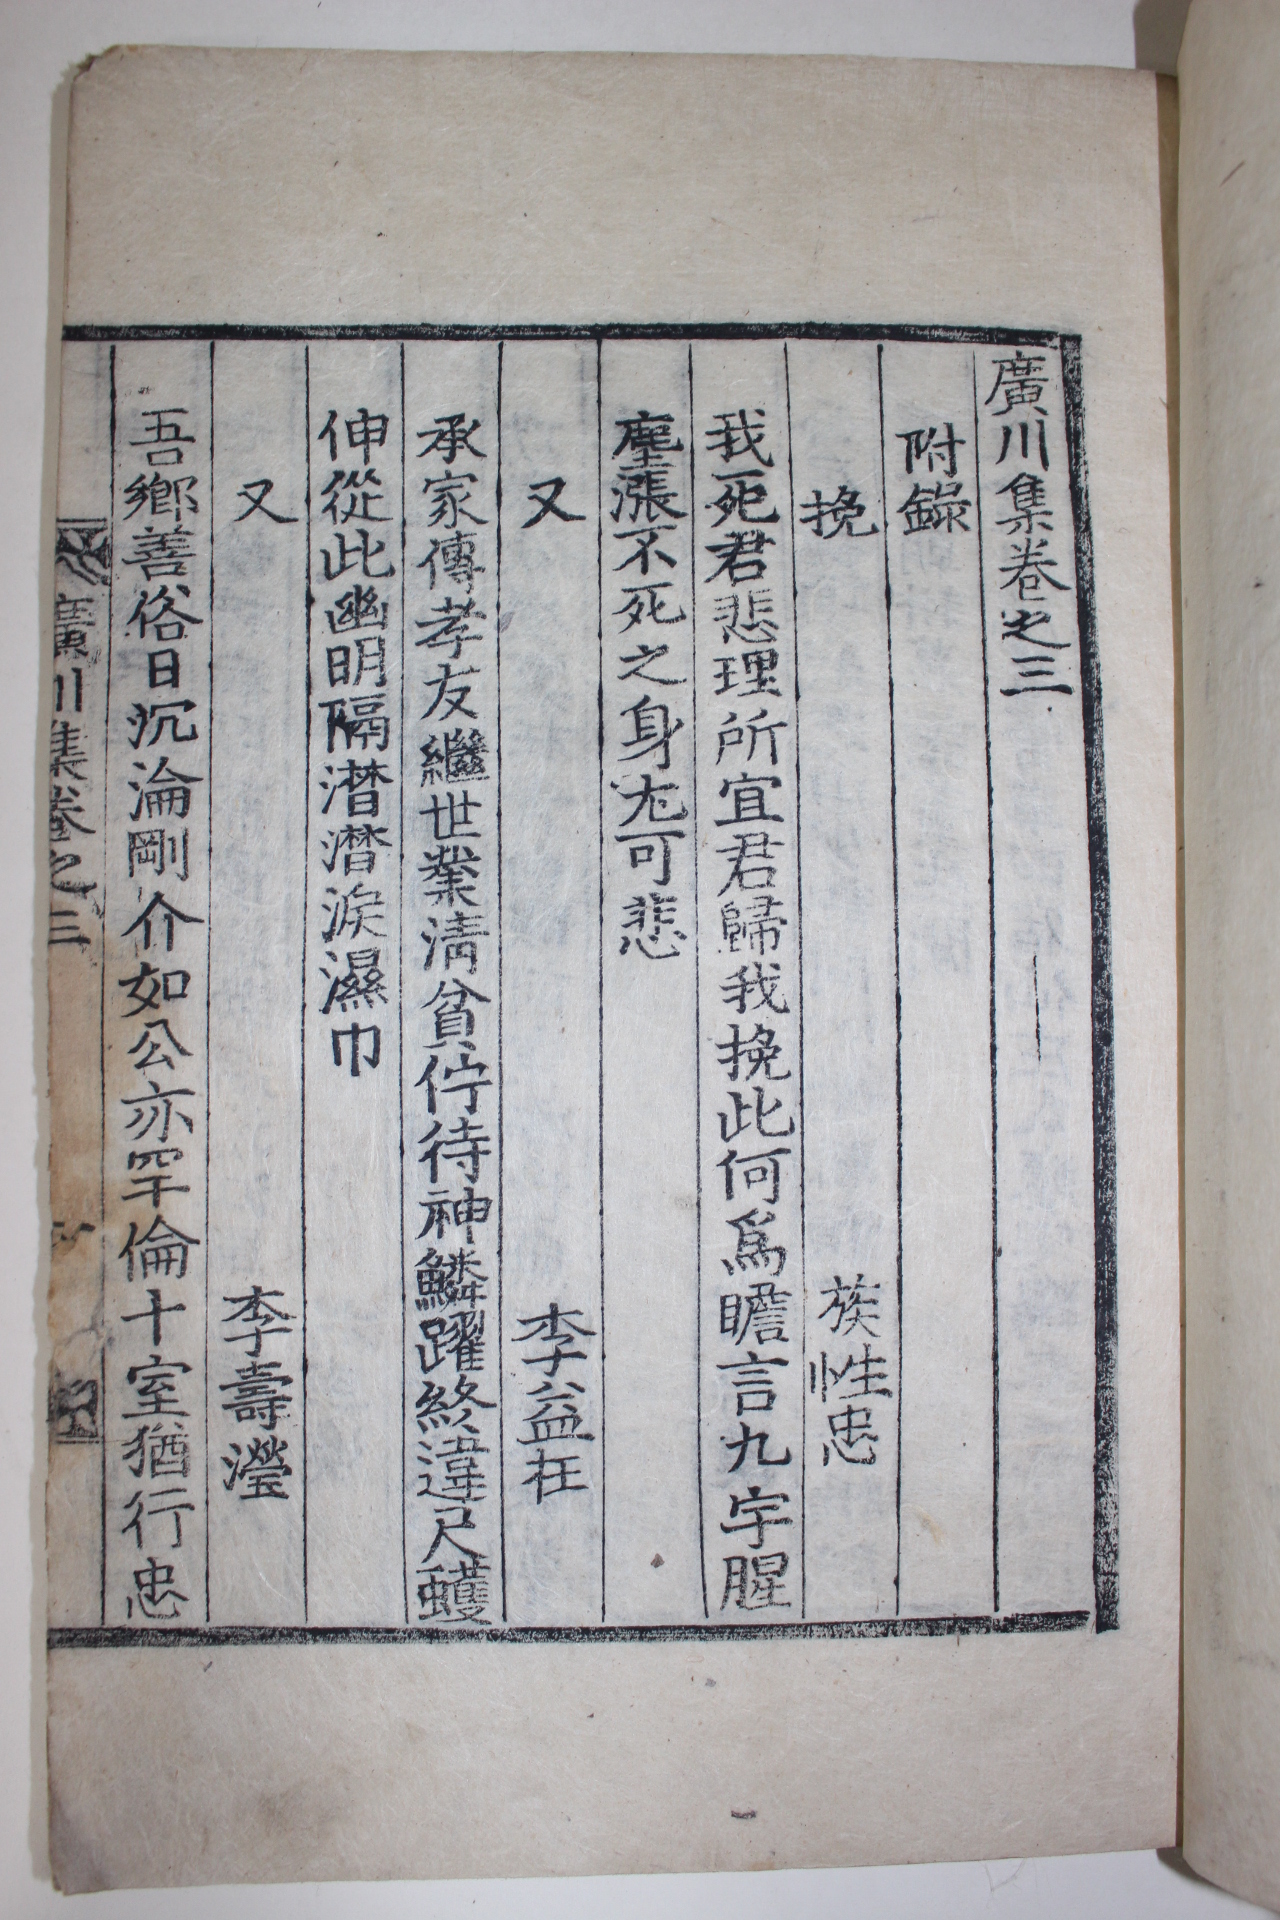 廣川集卷之三
附錄
挽 族 性忠
我死君悲理所宜君歸我挽此何爲瞻言九宇腥
塵漲不死之身尤可悲
又 李公益枉
承家傳孝友繼世業淸貧佇待神鱗躍終違尺蠖
伸從此幽明隔潸潸淚濕巾
又 李壽瀅
吾鄕善俗日沉淪剛介如公亦罕倫十室猶行忠
廣川集卷之三